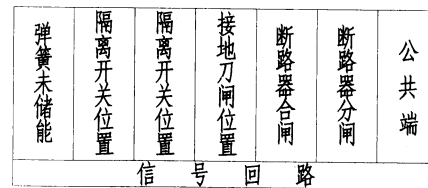 弹簧未储能
隔离开关位置
隔离开关位置
接地刀闸位置
断路器合闸
断路器分闸
公共端
信号回路